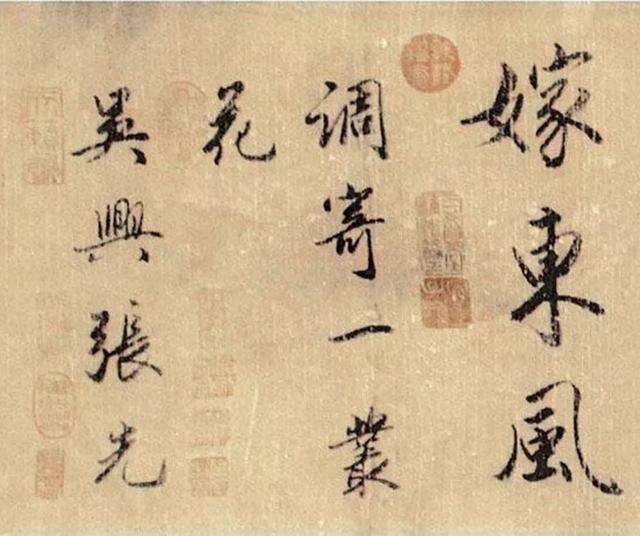 嫁東風
調寄一叢
花
吳興張先